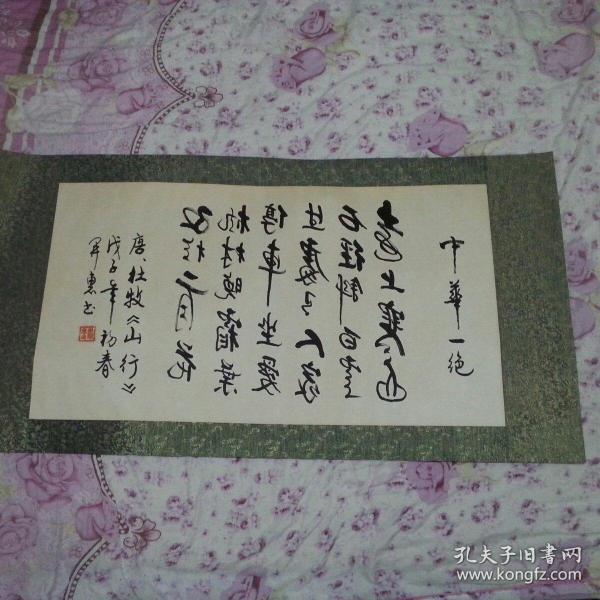 中華一绝
遠上寒山
石徑斜白雲
生處有人家
停車坐愛
楓林晚霜葉
红於二月花
唐、杜牧《山行》
戊子年初春
惠书
孔夫子旧书网
www.kongfz.com